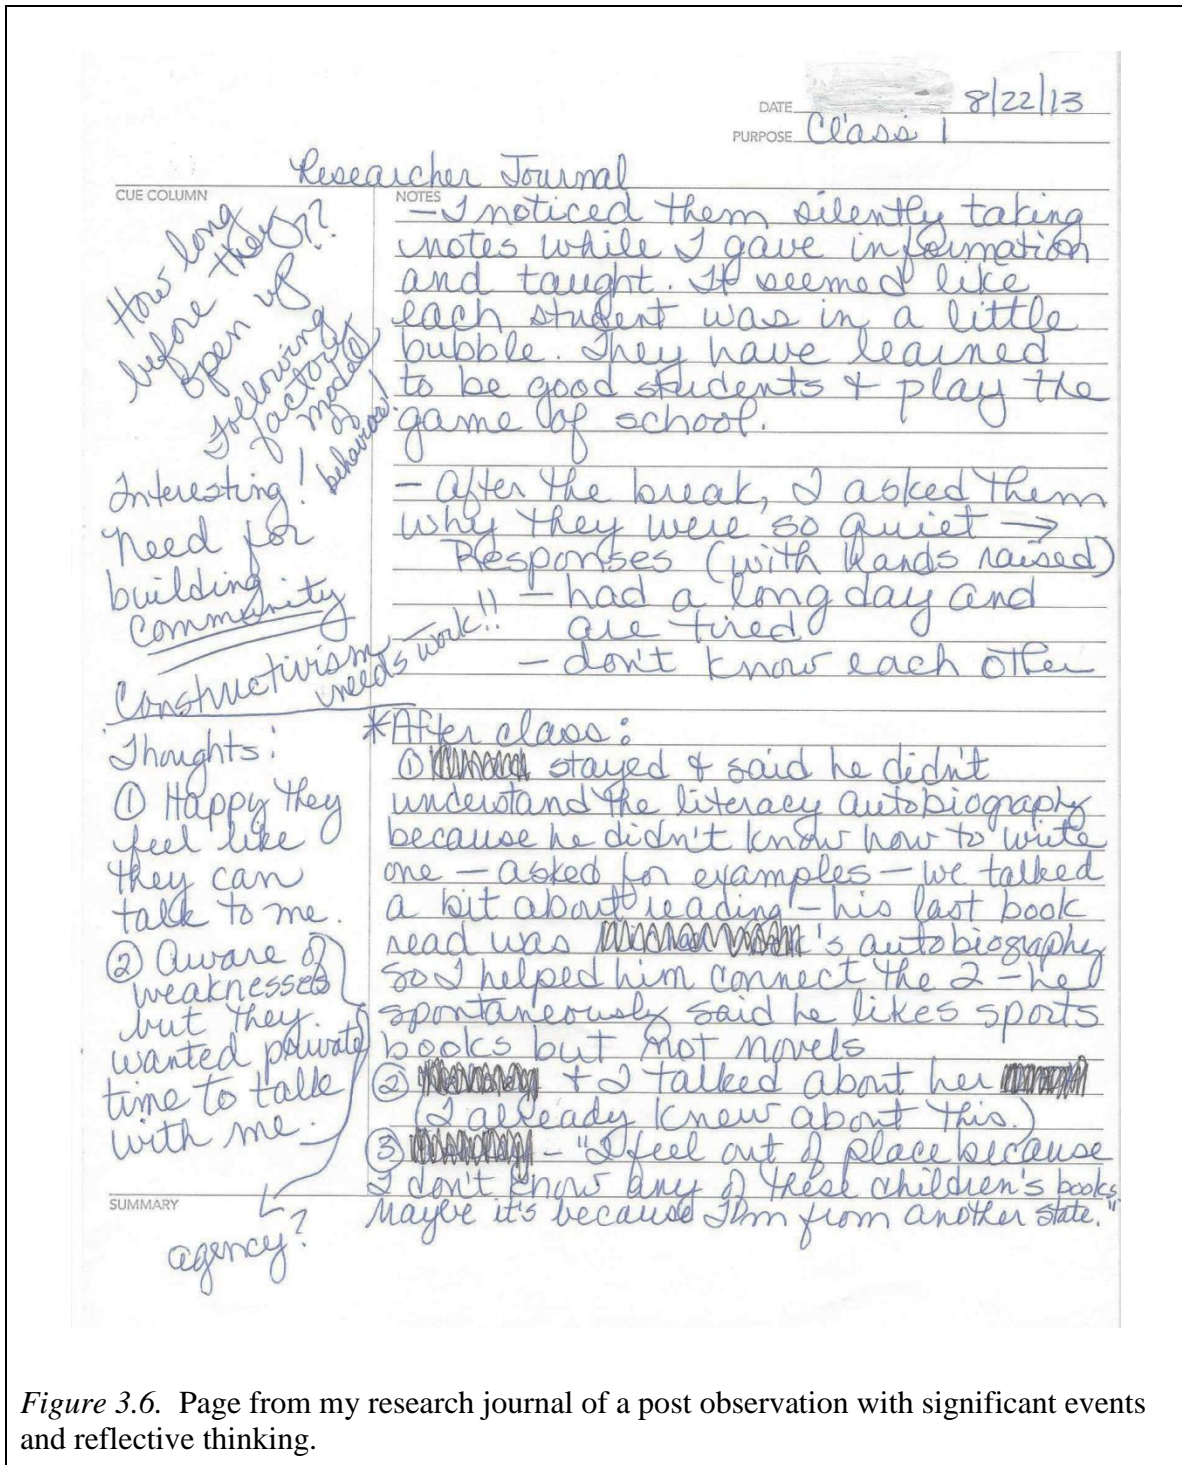 DATE 8/22/13
PURPOSE Class 1
Researcher Journal
CUE COLUMN
How long
before they
open up??
Following
factory
model
of
behavior!
Interesting!
Need for
building
community
Constructivism
needs work!!
Thoughts:
① Happy they
feel like
they can
talk to me.
② Aware of
weaknesses
but they
wanted private
time to talk
with me.
NOTES
- I noticed them silently taking
notes while I gave information
and taught. It seemed like
each student was in a little
bubble. They have learned
to be good students + play the
game of school.
- After the break, I asked them
why they were so quiet →
Responses (with hands raised)
- had a long day and
are tired
- don't know each other
*After class:
① stayed & said he didn't
understand the literacy autobiography
because he didn't know how to write
one - asked for examples - we talked
a bit about reading - his last book
read was 's autobiography
so I helped him connect the 2 - he
spontaneously said he likes sports
books but not novels
② + I talked about her
(I already knew about this.)
③ - "I feel out of place because
I don't know any of these children's books.
Maybe it's because I'm from another state."
SUMMARY
agency?
Figure 3.6. Page from my research journal of a post observation with significant events
and reflective thinking.